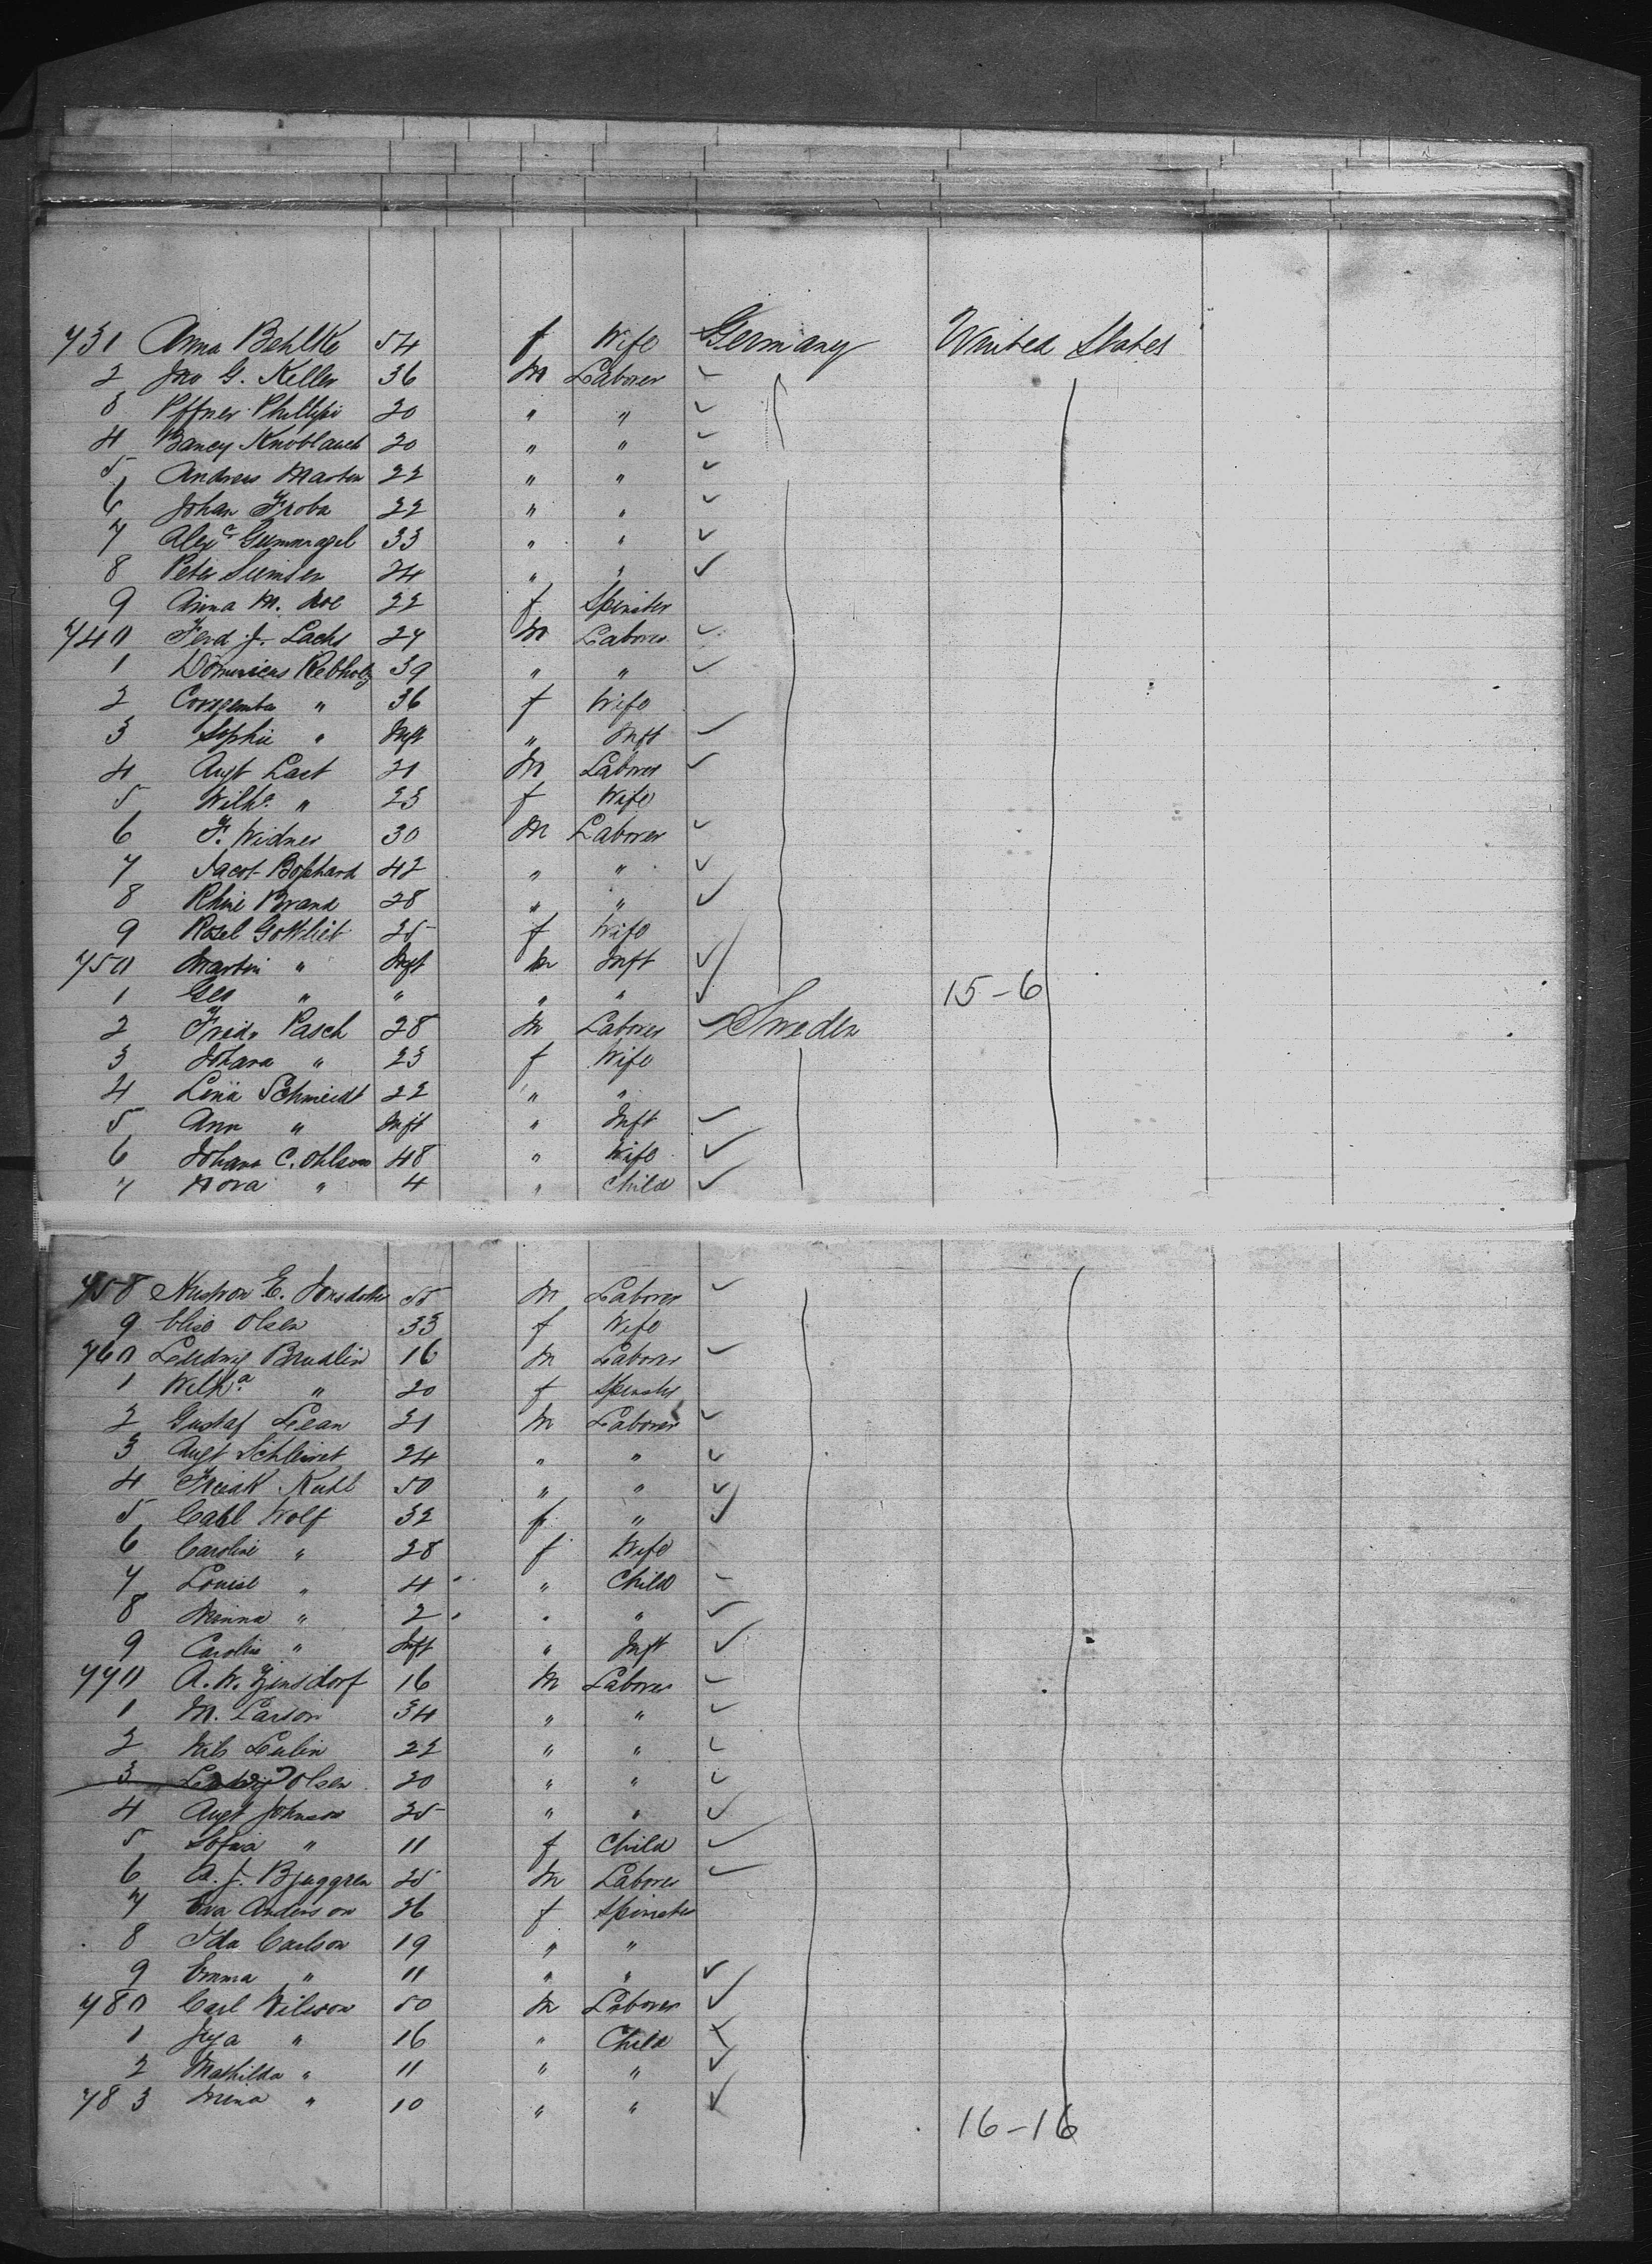 731 Anna Behlke 54 f Wife Germany United States
2 Jno G. Keller 36 M Laborer
3 Pffner Phillipi 20 " "
4 Bancy Knoblauch 20 " "
5 Andreas Marten 22 " "
6 Johan Froba 22 " "
7 Alex Gummagel 33 " "
8 Peter 24 " "
9 Anna M. 22 f Spinster
740 Ferd J. Lachs 27 M Laborer
1 Dominicus Rebholz 39 " "
2 " 36 f Wife
3 Sophie " Inft " Inft
4 Augt Last 21 M Laborer
5 Wilh. " 23 f Wife
6 F. Widner 30 M Laborer
7 Jacob Bosshard 42 " "
8 Brand 28 " "
9 Rosel Gottlieb 25 f Wife
750 Martin " Inft M Inft
1 Geo " " " " 15-6
2 Fred. Pasch 28 M Laborer Sweden
3 Johana " 23 f Wife
4 Lina Schmeidt 22 " "
5 Ann " Inft " Inft
6 Johana C. Ohlson 48 " Wife
7 Nora " 4 " Child
758 E. Jonsdotter 55 M Laborer
9 Elise Olsen 33 f Wife
760 Ludwig Brudlin 16 M Laborer
1 Wilha " 20 f Spinster
2 Gustaf Lean 21 M Laborer
3 Augt 24 " "
4 50 " "
5 Carl Wolf 32 f "
6 Caroline " 28 f Wife
7 Louise " 4 " Child
8 Minna " 2 " "
9 Caroline " Inft " Inft
770 A. W. Zinsdorf 16 M Laborer
1 M. Larson 34 " "
2 Nils 22 " "
3 Ludwig Olsen 20 " "
4 Augt Johnson 35 " "
5 Sofia " 11 f Child
6 A. J. Bjuggren 25 M Laborer
7 Eva Anderson 26 f Spinster
8 Ida Carlson 19 " "
9 Emma " 11 " "
780 Carl Nilsson 50 M Laborer
1 " 16 " Child
2 Mathilda " 11 " "
783 Mina " 10 " "
16-16